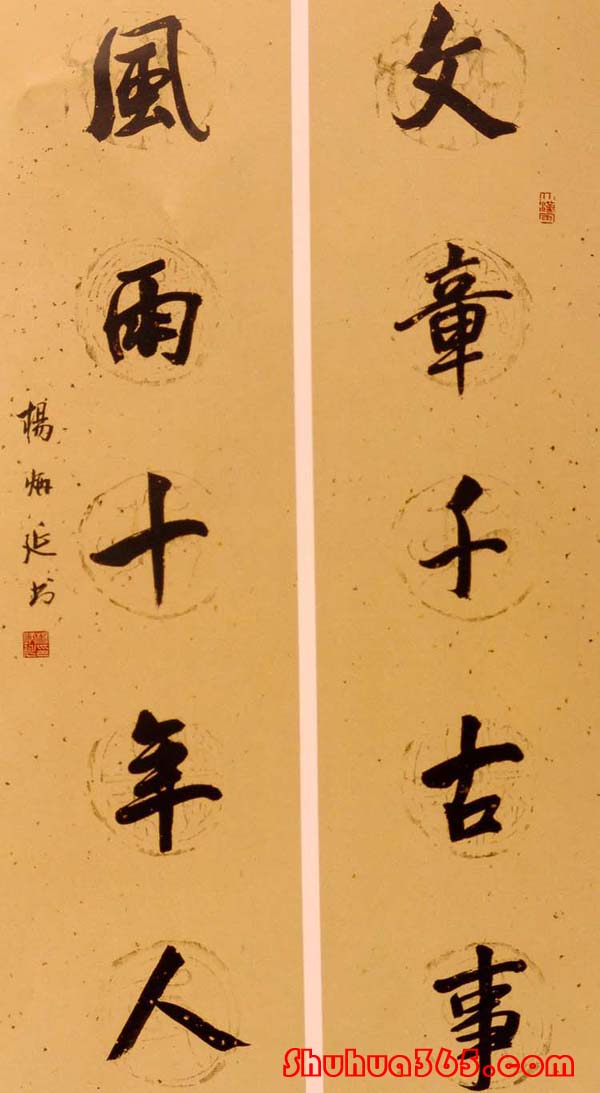 文章千古事
風雨十年人
楊炳延书
Shuhua365.com